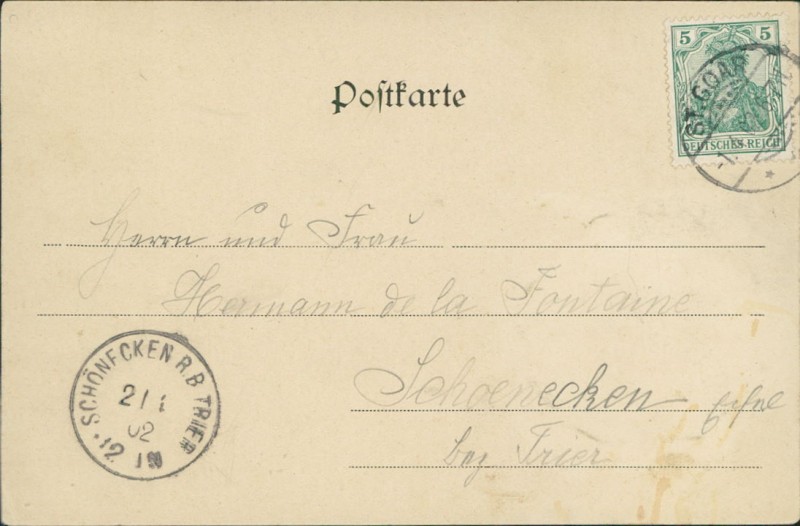 5 5
DEUTSCHES REICH
ST. GOAR
Postkarte
Herrn und Frau
Hermann de la Fontaine
Schoenecken Eifel
bez Trier
SCHÖNECKEN R.B. TRIER
2/1
02